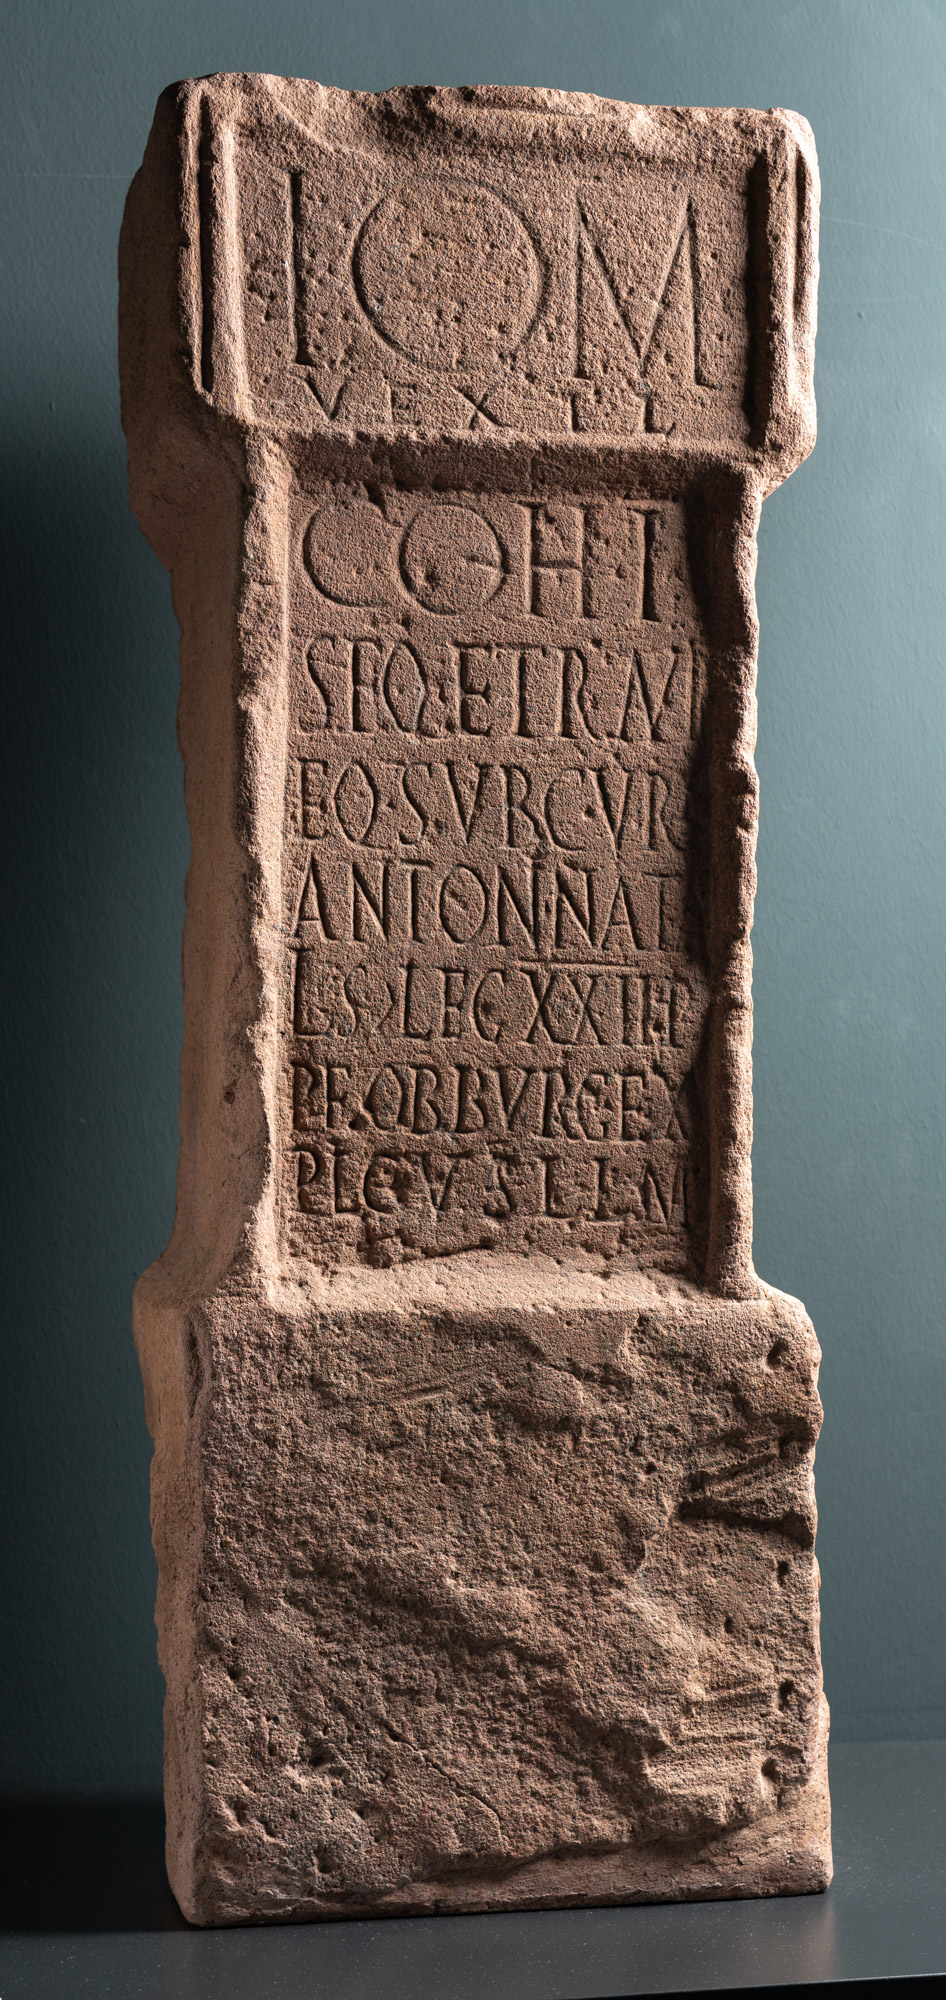 IOM
VEXIL
COH I
SEQ·ET RAVR
EQ·SVB CVR
ANTON NATA
LS·LEG XXII P
P F OB BVRG EX
PLC V S L L M